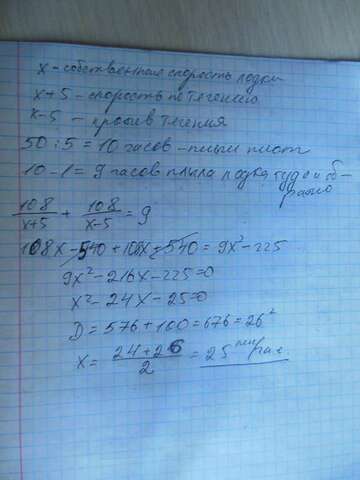 x - собственная скорость лодки
x+5 - скорость по течению
x-5 - против течения
50:5 = 10 часов - плыл плот
10-1 = 9 часов плыла лодка туда и об-
ратно
108/x+5 + 108/x-5 = 9
108x - 540 + 108x + 540 = 9x² - 225
9x² - 216x - 225 = 0
x² - 24x - 25 = 0
D = 576 + 100 = 676 = 26²
x = 24+26/2 = 25 км/час.